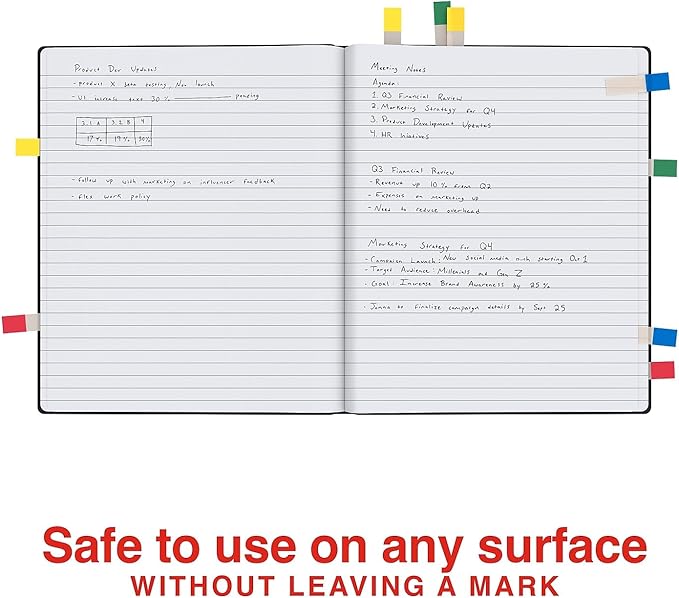 Product Dev Updates
- product X beta testing, Nov launch
- UI increase text 30% pending
3.1 A 3.2 B 4
17% 19% 30%
- follow up with marketing on influencer feedback
- flex work policy
Meeting Notes
Agenda:
1. Q3 Financial Review
2. Marketing Strategy for Q4
3. Product Development Updates
4. HR Iniatives
Q3 Financial Review
- Revenue up 10% from Q2
- Expenses on marketing up
- Need to reduce overhead
Marketing Strategy for Q4
- Campaign Launch: New social media push starting Oct 1
- Target Audience: Millenials and Gen Z
- Goal: Increase Brand Awareness by 25%
- to finalize campaign details by Sept 25
Safe to use on any surface
WITHOUT LEAVING A MARK